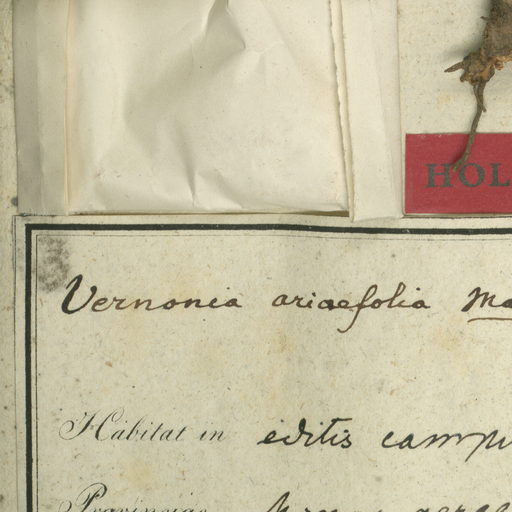 HOL
Vernonia ariaefolia Ma
Habitat in editis camp
Provinciae